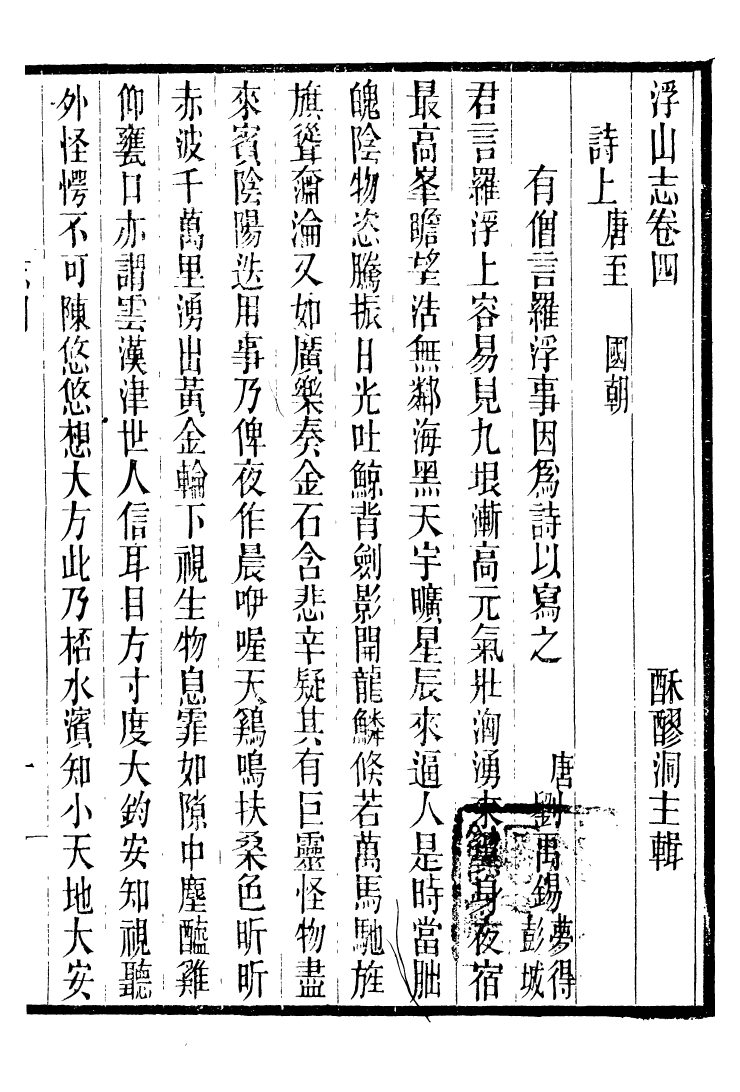 浮山志卷四　酥醪洞主輯
詩上 唐至　國朝
有僧言羅浮事因爲詩以寫之　唐劉禹錫 夢得彭城
君言羅浮上容易見九垠漸高元氣壯洶湧來翼身夜宿
最高峯瞻望浩無鄰海黑天宇曠星辰來逼人是時當朏
魄陰物恣騰振日光吐鯨背劍影開龍鱗倏若萬馬馳旌
旗聳奫淪又如廣樂奏金石含悲辛疑其有巨靈怪物盡
來賓陰陽迭用事乃俾夜作晨咿喔天鷄鳴扶桑色昕昕
赤波千萬里湧出黃金輪下視生物息霏如隙中塵醯雞
仰甕口亦謂雲漢津世人信耳目方寸度大鈞安知視聽
外怪愕不可陳悠悠想大方此乃桮水濱知小天地大安